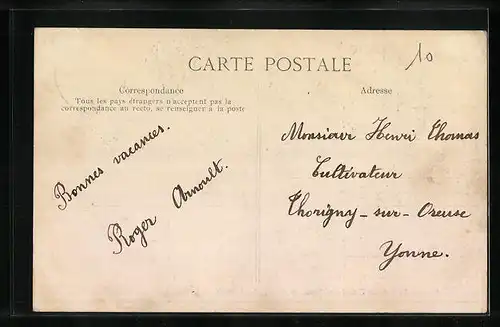 CARTE POSTALE
10
Correspondance
Tous les pays étrangers n'acceptent pas la
correspondance au recto, se renseigner à la poste
Adresse
Bonnes vacances.
Roger Arnoult.
Monsieur Henri Thomas
Cultivateur
Thorigny-sur-Oreuse
Yonne.